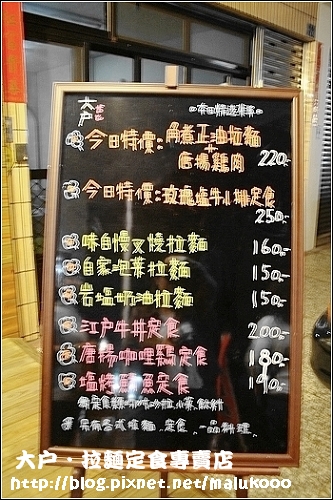 大戶
本日精選菜單
今日特價:角煮正油拉麵
+
唐揚雞肉
220.-
今日特價:玫瑰塩牛小排定食
250.-
味自慢叉燒拉麵 160.-
自家泡菜拉麵 150.-
岩塩奶油拉麵 150.-
江戶牛丼定食 200.-
唐揚咖哩雞定食 180.-
塩烤鯖魚定食 190.-
另有各式拉麵.定食.一品料理.
大戶・拉麵定食專賣店
http://blog.pixnet.net/malukooo